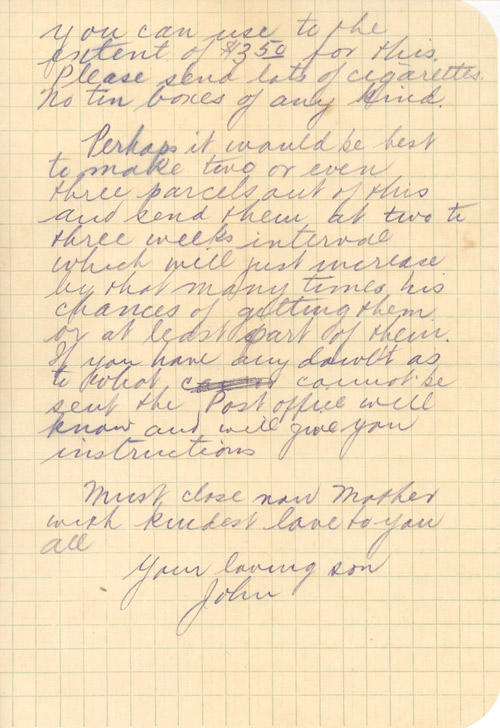 you can use to the
extent of $3.50 for this.
Please send lots of cigarettes.
No tin boxes of any kind.
Perhaps it would be best
to make two or even
three parcels out of this
and send them at two to
three weeks interval
which will just increase
by that many times his
chances of getting them
or at least part of them.
If you have any doubt as
to what cannot be
sent the Post office will
know and will give you
instructions
Must close now Mother
with kindest love to you
all
Your loving son
John